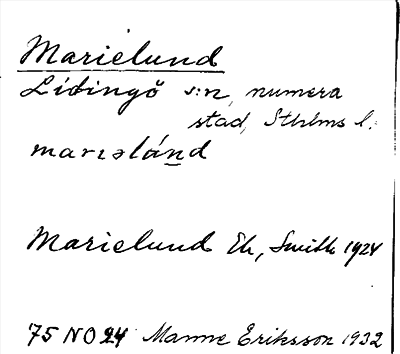 Marielund
Lidingö s:n, numera
stad, Sthlms l.
marıəlánd
Marielund Eh, Smith 1924
75 NO 24 Manne Eriksson 1932